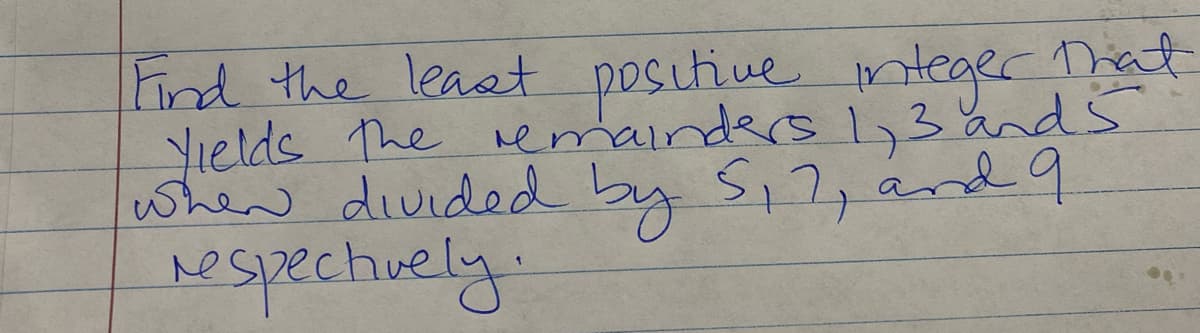 Find the least positive integer that
yields the remainders 1, 3 and 5
when divided by 5, 7, and 9
respectively.